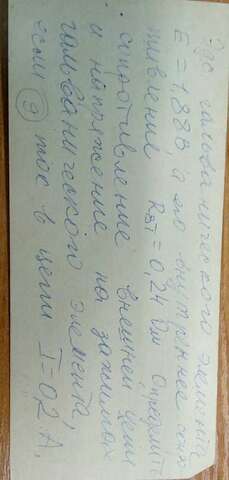 ЭДС гальванического элемента
E = 1,88 В, а его внутреннее соп-
тивление Rвт = 0,24 Ом Определить
сопротивление внешней цепи
и напряжение на зажимах
гальванического элемента,
если ток в цепи I = 0,2 А.